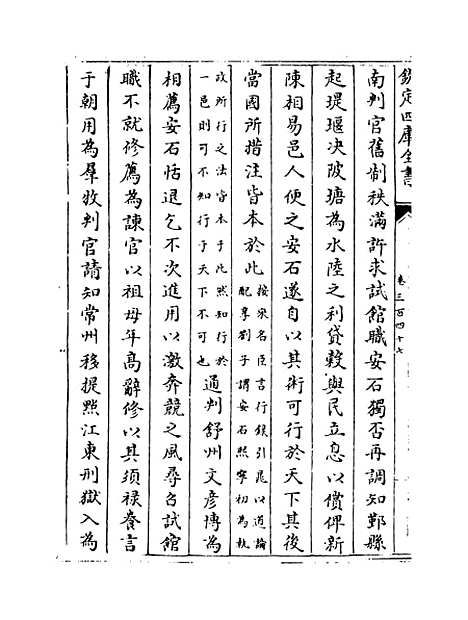 欽定四庫全書
卷三百四十七
南判官舊制秩滿許求試館職安石獨否再調知鄞縣
起堤堰决陂塘為水陸之利貸穀與民立息以償俾新
陳相易邑人便之安石遂自以其術可行於天下其後
當國所措注皆本於此
按宋名臣言行録引晁以道論
配享劄子謂安石熙寧初為執
政所行之法皆本于此然知行於
一邑則可不知行于天下不可也
通判舒州文彦博為
相薦安石恬退乞不次進用以激奔競之風尋召試館
職不就修薦為諫官以祖母年髙辭修以其須禄養言
于朝用為羣牧判官請知常州移提㸃江東刑獄入為